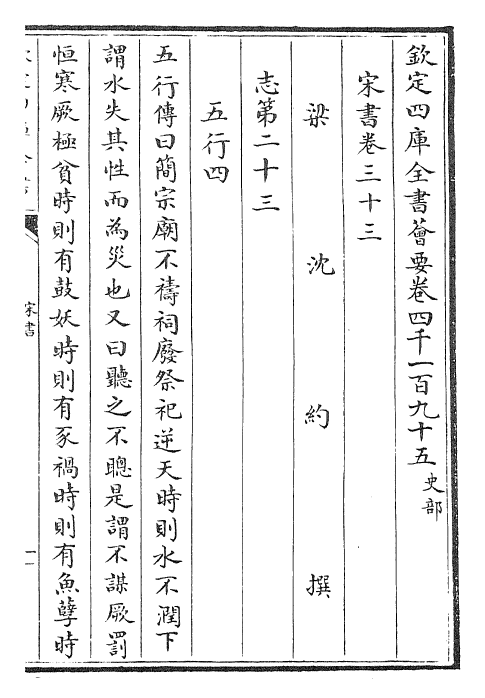 欽定四庫全書薈要卷四千一百九十五史部
宋書卷三十三
梁沈約撰
志第二十三
五行四
五行傳曰簡宗廟不禱祠廢祭祀逆天時則水不潤下
謂水失其性而為災也又曰聽之不聰是謂不謀厥罰
恒寒厥極貧時則有鼓妖時則有豕禍時則有魚孽時
宋書
一